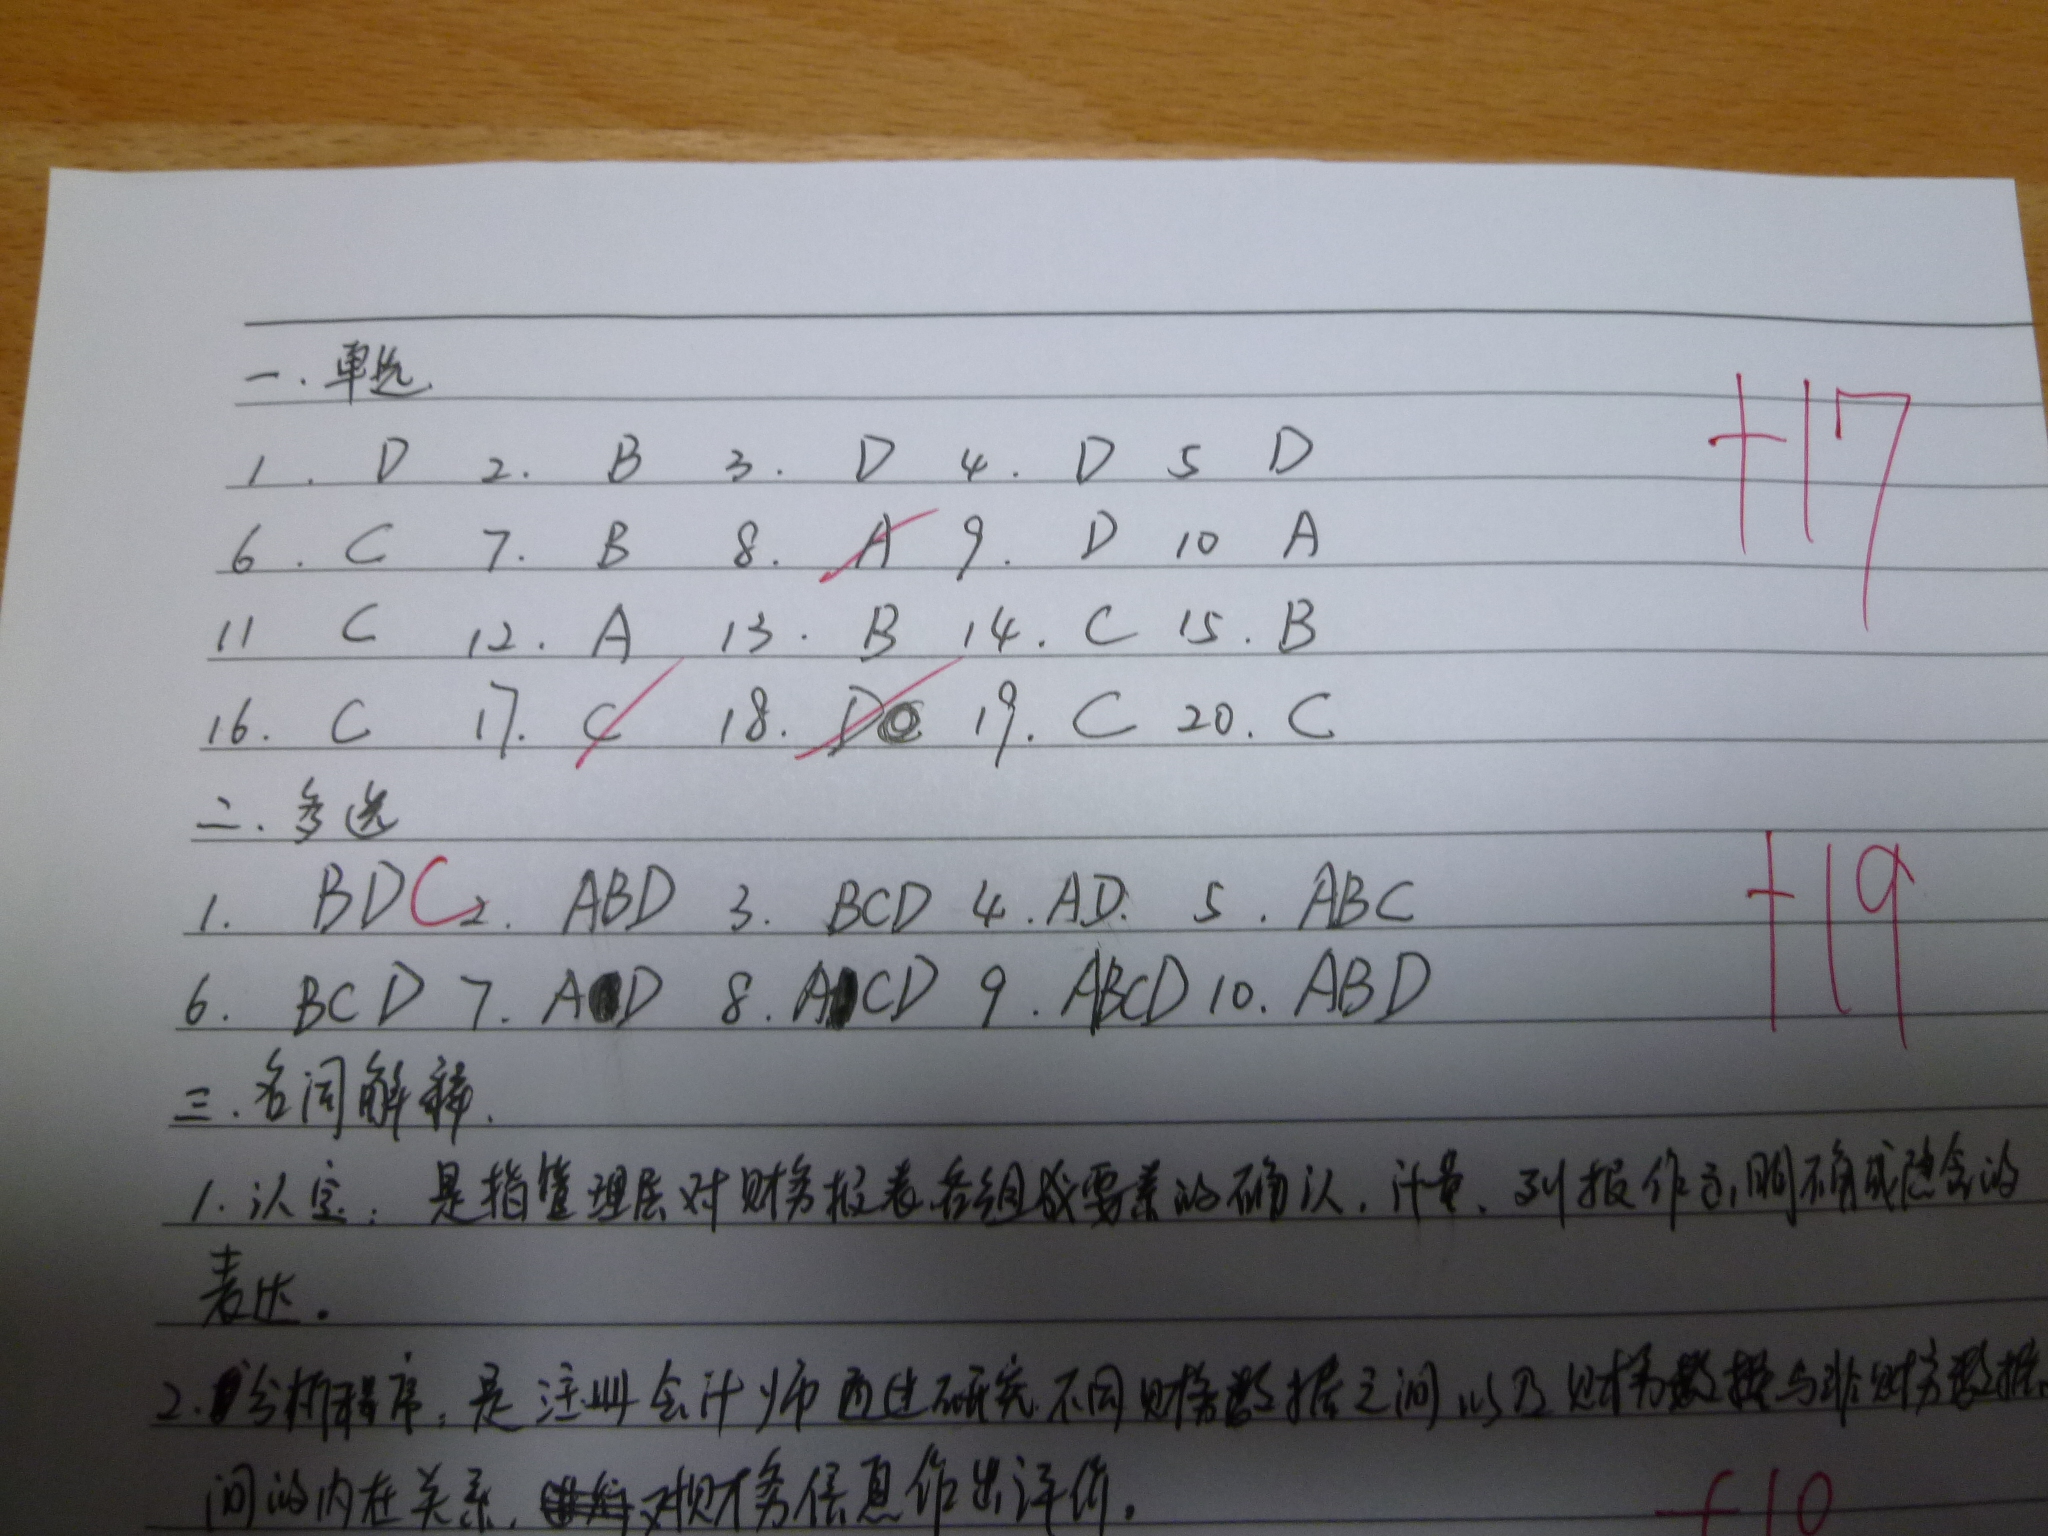 一.单选
1. D 2. B 3. D 4. D 5 D
+17
6. C 7. B 8. A 9. D 10 A
11 C 12. A 13. B 14. C 15. B
16. C 17. C 18. D 19. C 20. C
二.多选
1. BDC 2. ABD 3. BCD 4. AD. 5. ABC
+19
6. BCD 7. AD 8. ACD 9. ABCD 10. ABD
三.名词解释.
1. 认定: 是指管理层对财务报表各组成要素的确认、计量、列报作出的明确或隐含的
表达。
2. 分析程序: 是注册会计师通过研究不同财务数据之间以及财务数据与非财务数据之
间的内在关系, 对财务信息作出评价。
+10